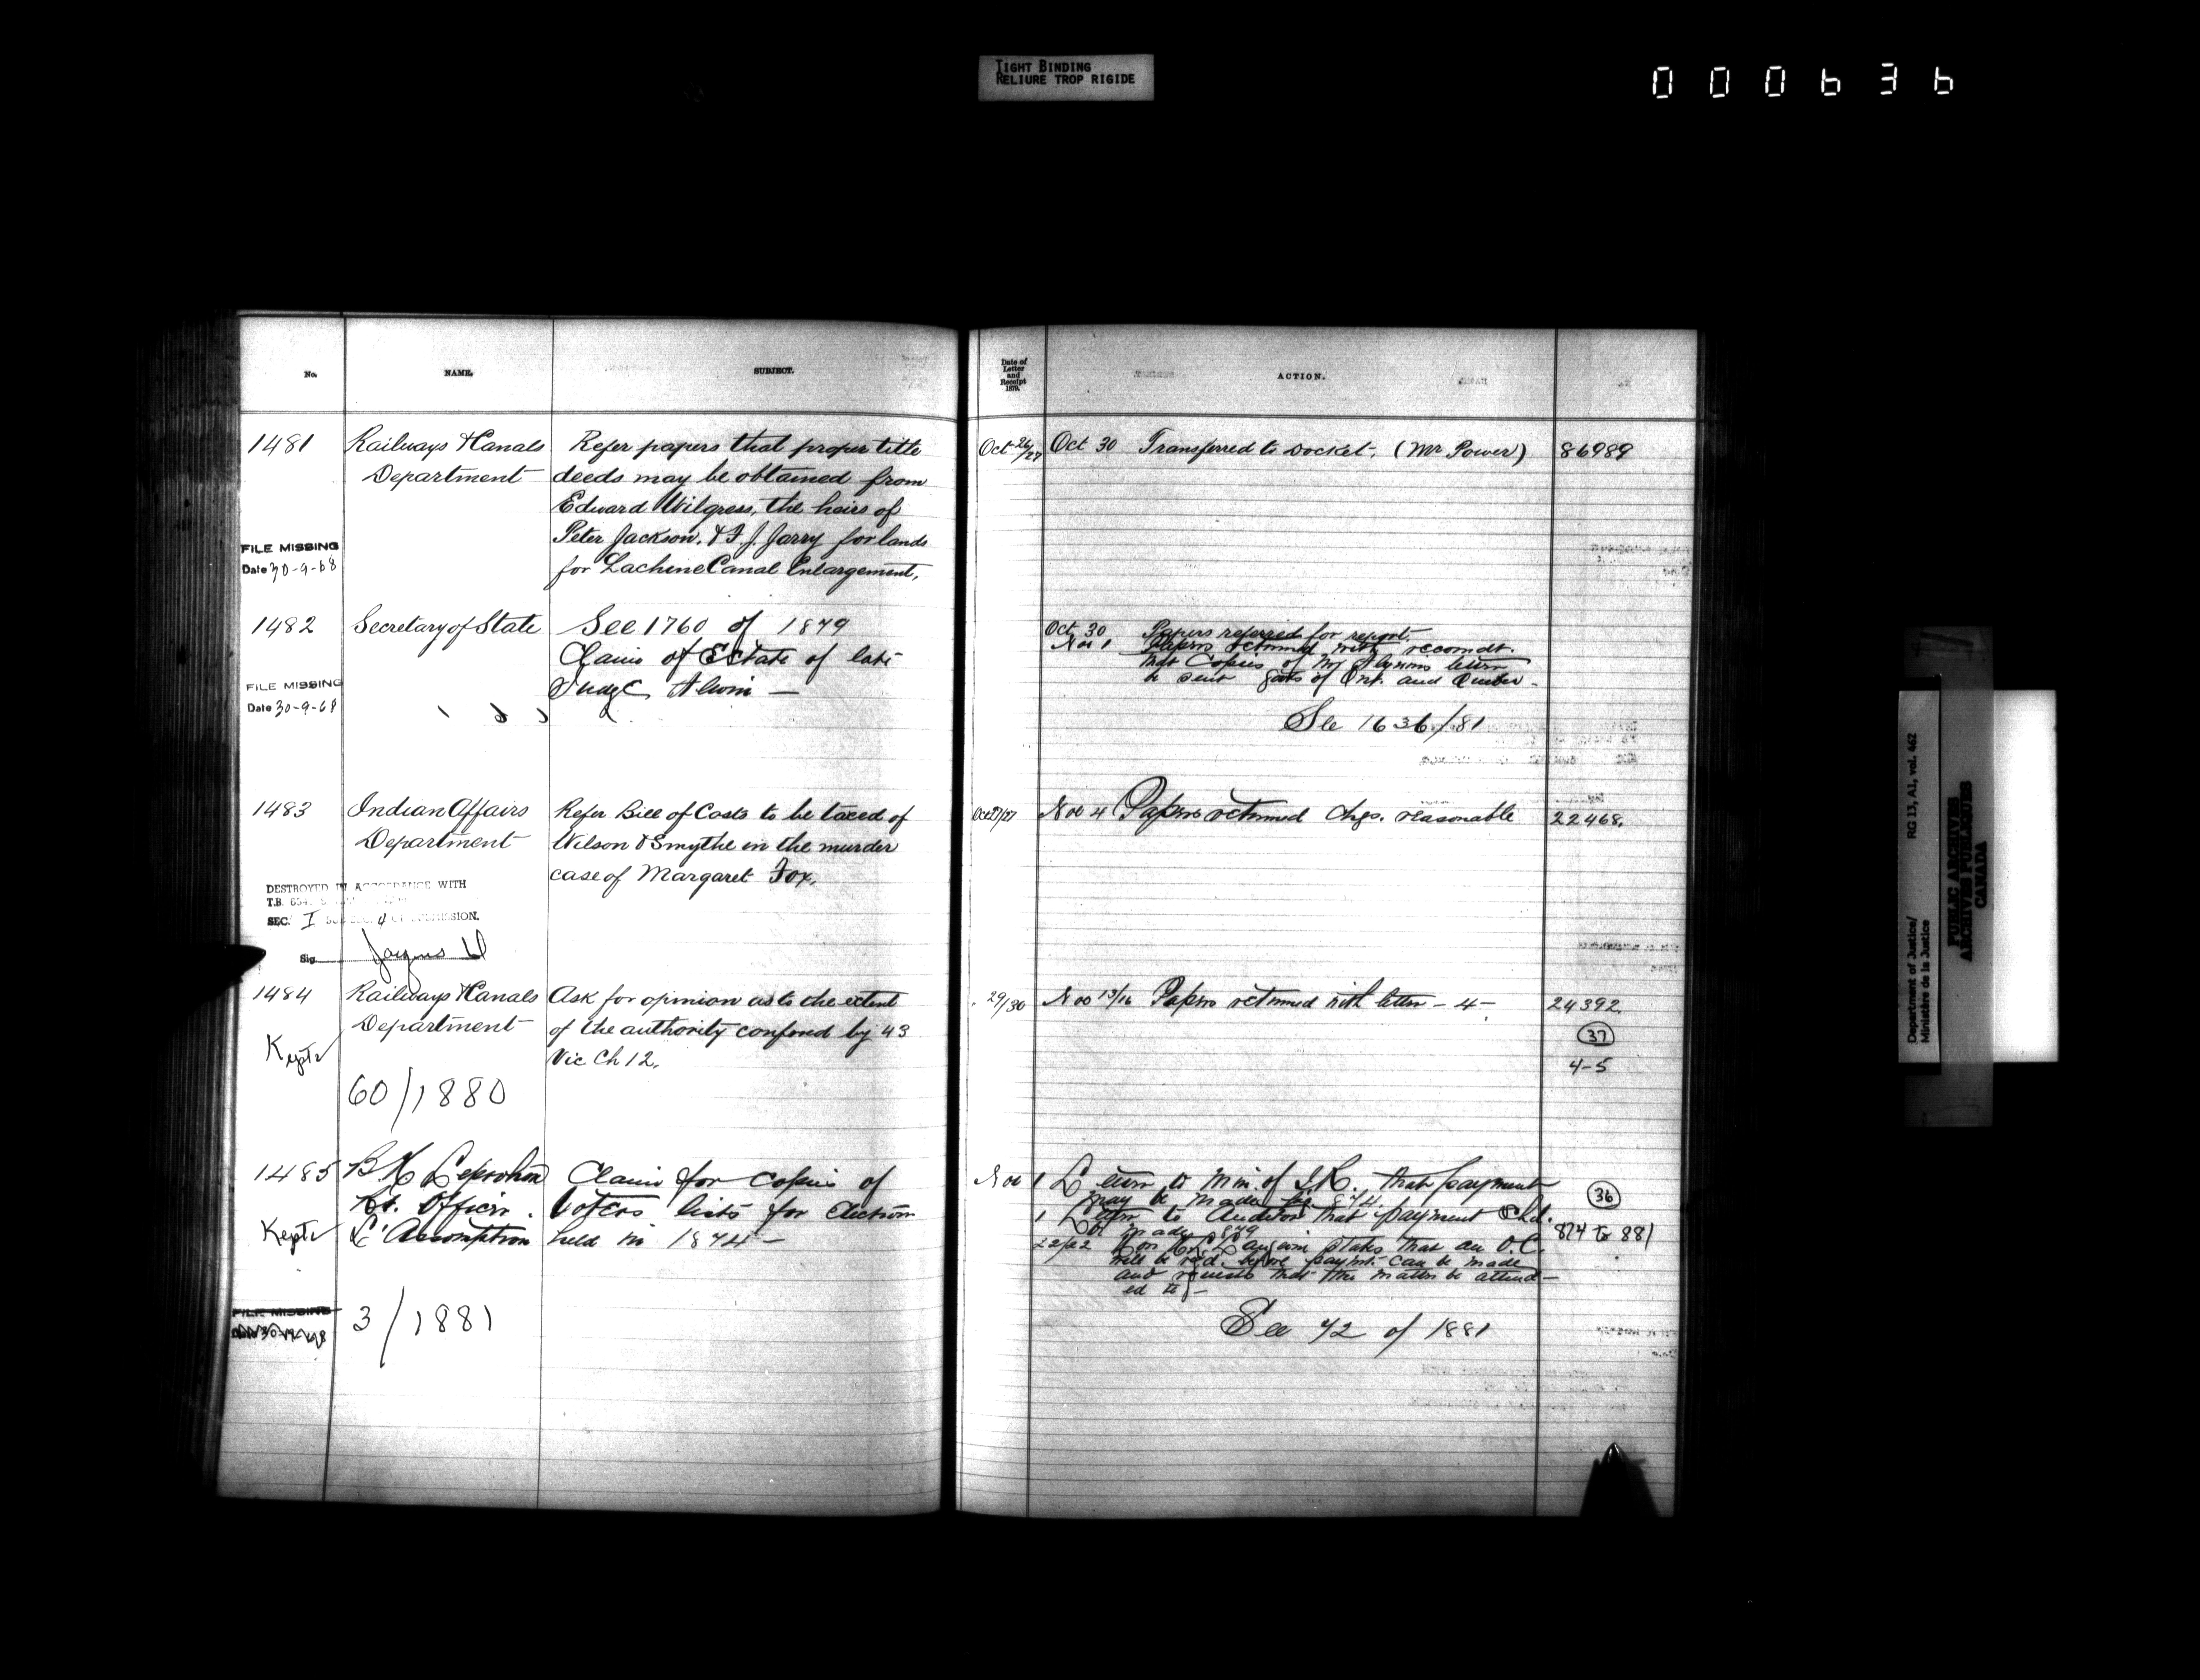 TIGHT BINDING
RELIURE TROP RIGIDE
000636
No.
NAME.
SUBJECT.
1481
Railways & Canals
Department
Refer papers that proper title
deeds may be obtained from
Edward Wilgress, the heirs of
Peter Jackson, & F. J. Jarry for lands
for Lachine Canal Enlargement,
FILE MISSING
Date 30-9-68
1482
Secretary of State
See 1760 of 1879
Claim of Estate of late
Judge Alwin —
FILE MISSING
Date 30-9-68
1483
Indian Affairs
Department
Refer Bill of Costs to be taxed of
Wilson & Smythe in the murder
case of Margaret Fox.
DESTROYED IN ACCORDANCE WITH
T.B.
SEC. I 4 SUBMISSION.
Sig
1484
Railways & Canals
Department
Ask for opinion as to the extent
of the authority confered by 43
Vic Ch 12.
Kept
60/1880
1485
B. H. Leprohon
Rt. Officer.
L'Assomption
Claim for Copies of
Voters lists for Election
held in 1874 —
Kept
FILE MISSING
3/1881
Date of
Letter
and
Receipt
1879.
ACTION.
Oct 26/27
Oct 30 Transferred to Docket. (Mr Power)
86989
Oct 30 Papers referred for report.
Nov 1 Papers returned with recomdt.
that Copies of Mr letter
be sent Govts of Ont. and Quebec —
See 1636/81
Oct 27/27
Nov 4 Papers returned Chgs. reasonable
22468.
29/30
Nov 13/16 Papers returned with letter — 4 —
24392.
37
4-5
Nov
1 Letter to Min. of I.R. that payment
may be made 874
1 Letter to Auditor that payment shd.
be made 879
22/22 Hon H. L. Langevin states that an O.C.
will be reqd. before paymt. can be made
and requests that the matter be attend—
ed to —
36
874 to 881
See 72 of 1881
Department of Justice/
Ministère de la Justice
RG 13, A1, vol. 462
PUBLIC ARCHIVES
ARCHIVES PUBLIQUES
CANADA